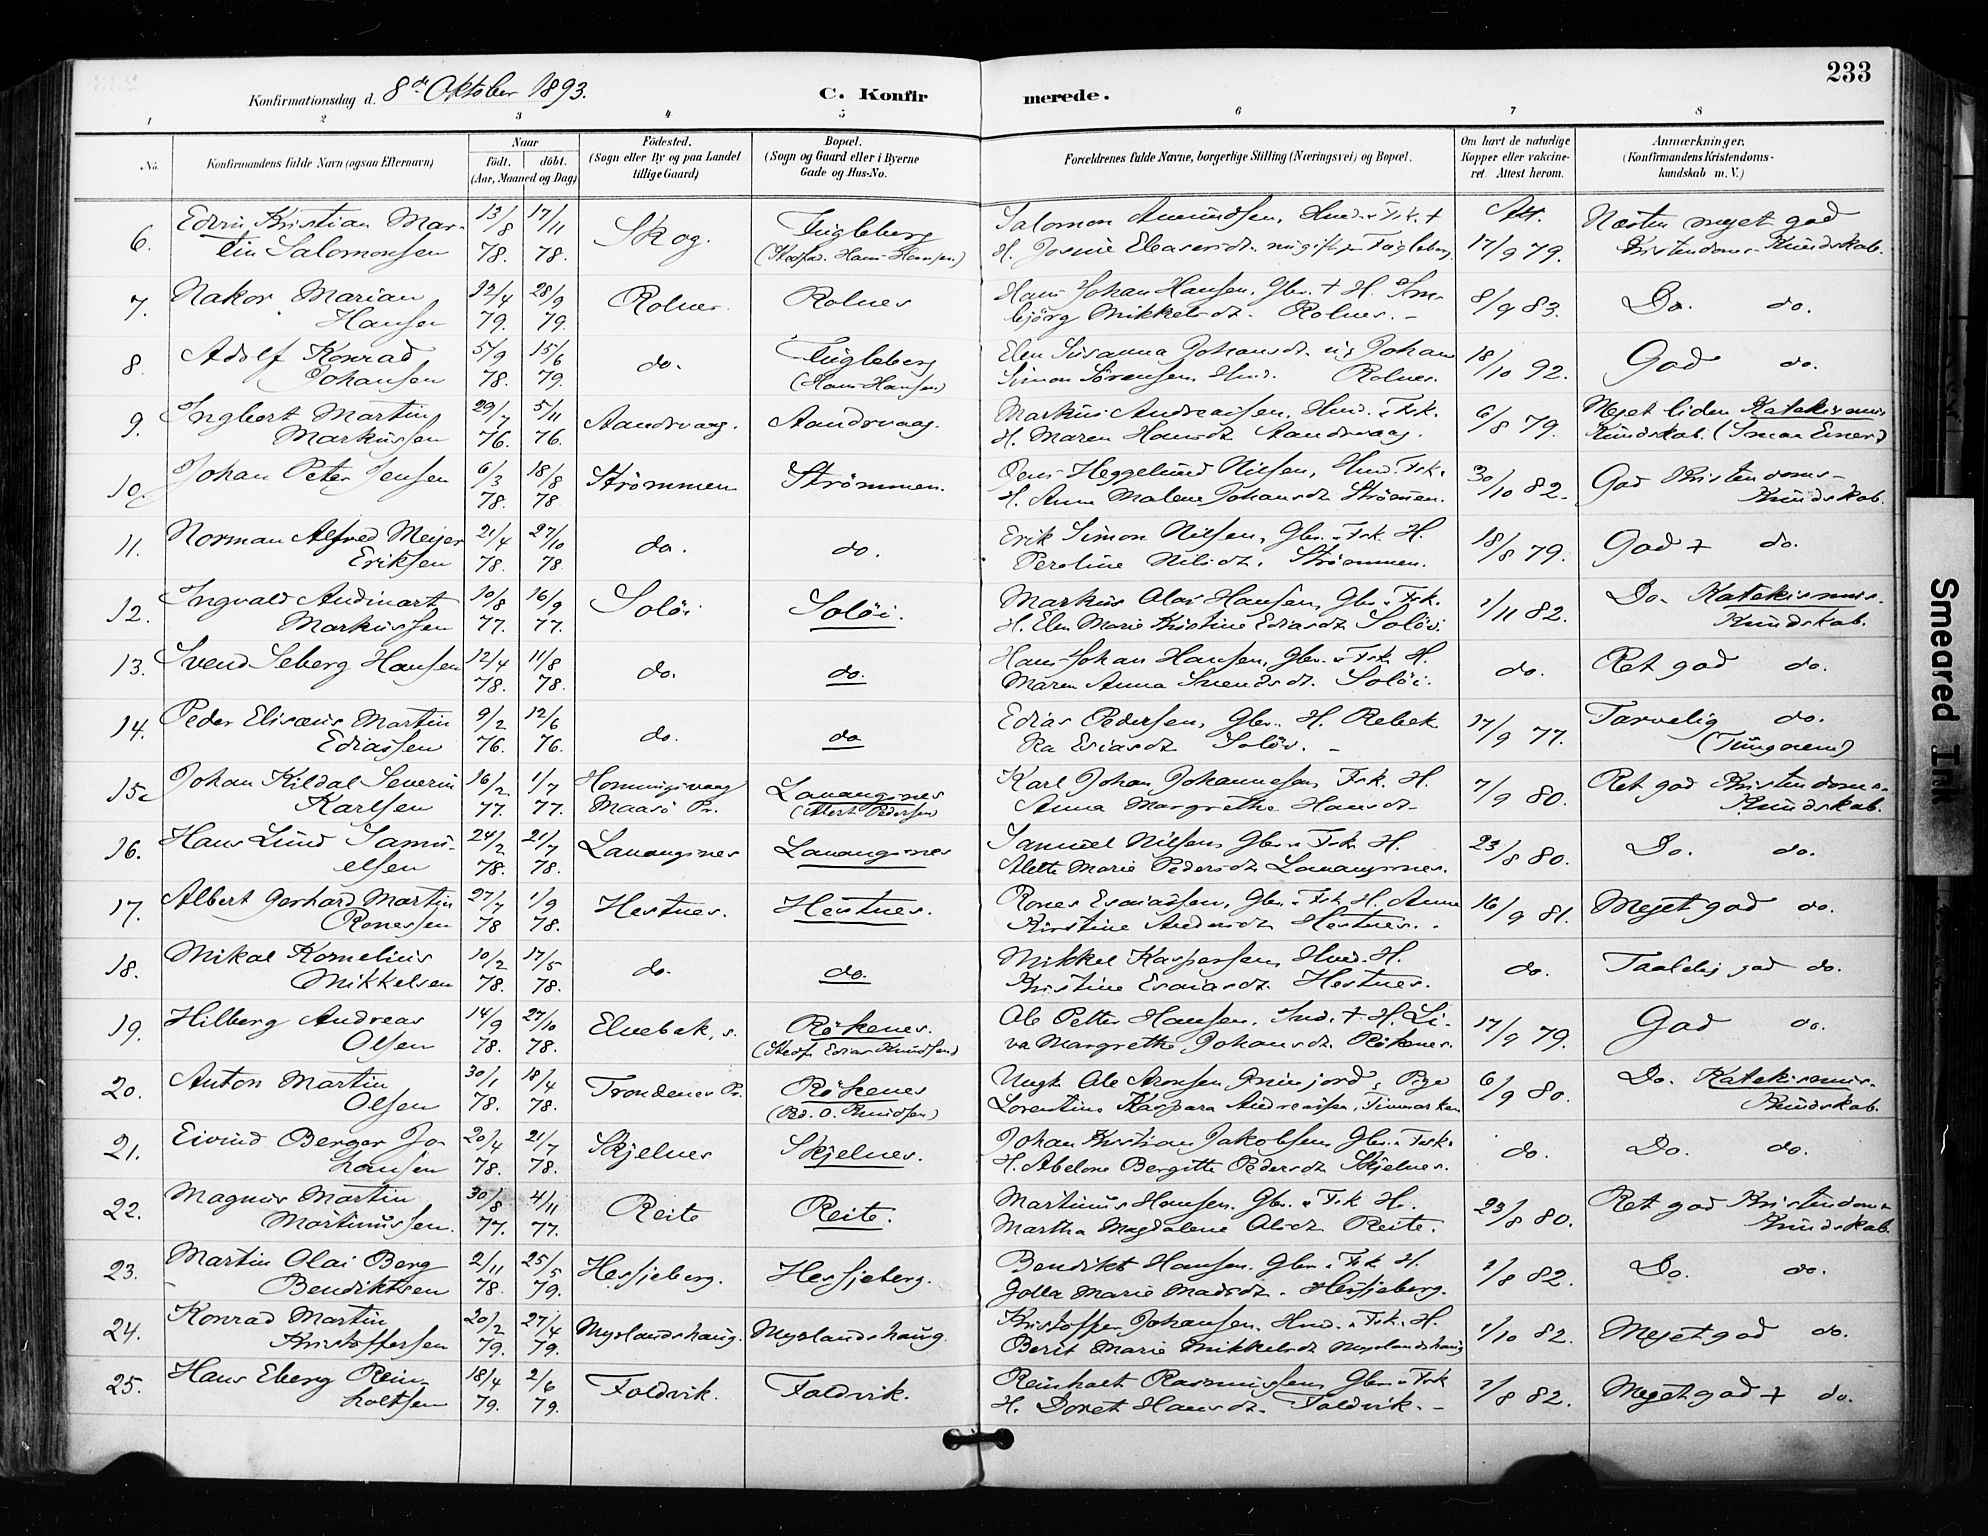 233
Konfirmationsdag d. 8de Oktober 1893.
C. Konfirmerede.
1 2 3 4 5 6 7 8
No.
Konfirmandens fulde Navn (ogsaa Efternavn)
Naar
födt. döbt.
(Aar, Maaned og Dag)
Födested.
(Sogn eller By og paa Landet
tillige Gaard)
Bopæl.
(Sogn og Gaard eller i Byerne
Gade og Hus-No.
Forældrenes fulde Navne, borgerlige Stilling (Næringsvei) og Bopæl.
Om havt de naturlige
Kopper eller vakcine-
ret. Attest herom.
Anmærkninger.
(Konfirmandens Kristendoms-
kundskab m. V.)
6. Edvin Kristian Mar- 13/8 17/11 Skog. Fugleberg Salomon Amundsen, Att. Næsten meget god
tin Salomonsen 78. 78. (Hans Hansen) 17/9 79. Kristendoms-Kundskab.
7. Nakor Marian 12/4 28/9 Rolnes. Rolnes Hans Johan Hansen, Gbr. + H. 8/9 83. Do. do.
Hansen 79. 79. Mikkelsdt. Rolnes. -
8. Adolf Konrad 5/9 15/6 do. Fugleberg Elen Susanna Johansdt. Johan 18/10 92. God do.
Johansen 78. 79. (Hans Hansen) Simon Sörensen, Rolnes.
9. Ingbert Martin 29/7 5/11 Aandsvaag. Aandsvaag. Markus Andreassen, Fsk. 6/8 79. Meget liden Katekismus
Markussen 76. 76. H. Maren Hansdt. Aandsvaag. Kundskab. (Smaa Evner)
10. Johan Peter Jensen 6/3 18/8 Strömmen Strömmen. Jens Heggelund Nilsen, Fsk. 30/10 82. God Kristendoms-
78. 78 H. Anna Malene Johansdt. Strömmen. Kundskab.
11. Norman Alfred Meijer 21/4 27/10 do. do. Erik Simon Nilsen, Gbr. & Fsk. H. 18/8 79. God + do.
Eriksen 78. 78. Peroline Nilsdt. Strömmen.
12. Ingvald Andinart 10/8 16/9 Solöi Solöi. Markus Olai Hansen, Gbr. & Fsk. 1/11 82. Do. Katekismus-
Markussen 77. 77. H. Elen Marie Kristine Ediasdt. Solöi. Kundskab.
13. Svend Seberg Hansen 12/4 11/8 do. do. Hans Johan Hansen, Gbr. & Fsk. H. do. Ret god do.
78. 78. Maren Anna Svendsdt. Solöi.
14. Peder Elisæus Martin 9/2 12/6 do. do Edias Pedersen, Gbr. H. Rebek 17/9 77. Tarvelig do.
Ediassen 76. 76. ka Esiasdt. Solöi. - (Tungnem)
15. Johan Kildal Severin 16/2 1/7 Honningsvaag Lavangsnes Karl Johan Johannesen, Fsk. H. 7/9 80. Ret god Kristendoms-
Karlsen 77. 77. Maasö Pr. (Albert Pedersen) Anna Margrethe Hansdt. Kundskab.
16. Hans Lund Samu- 24/2 21/7 Lavangsnes Lavangsnes Samuel Nilsen, Gbr. & Fsk. H. 23/8 80. Do. do.
elsen 78. 78. Alette Marie Pedersdt. Lavangsnes.
17. Albert Gerhard Martin 27/7 1/9 Hestnes. Hestnes. Rones Esaiassen, Gbr. & Fsk. H. Anne 16/9 81. Meget god do.
Ronessen 78 78. Kirstine Andersdt. Hestnes.
18. Mikal Kornelius 10/2 17/5 do. do. Mikkel Kaspersen, H. do. Taalelig god do.
Mikkelsen 78. 78. Kristine Esaiasdt. Hestnes.
19. Hilberg Andreas 14/9 27/10 Elvebak, s. Rökenes. Ole Petter Hansen, Ind. + H. Li- 17/9 79. God do.
Olsen 78. 78. (Stedf. Edias Knudsen) va Margrethe Johansdt. Rökenes.
20. Anton Martin 30/1 18/4 Trondenes Pr. Rökenes Ungk. Ole Aronsen & Pige 6/9 80. Do. Katekismus-
Olsen 78. 78. (Ed. O. Knudsen) Lorentine Kaspara Andreassen, Finmarken Kundskab.
21. Eivind Berger Jo- 20/4 21/7 Skjelnes Skjelnes. Johan Kristian Jakobsen, Gbr. & Fsk. do. Do. do.
hansen 78. 78. H. Abelone Bergitte Pedersdt. Skjelnes.
22. Magnus Martin 30/8 4/11 Reite Reite. Martinus Hansen, Gbr. & Fsk. H. 23/8 80. Ret god Kristendoms
Martinussen. 77. 77. Martha Magdalene Olsdt. Reite. Kundskab.
23. Martin Olai Berg 2/11 25/5 Hessjeberg. Hessjeberg. Bendikt Hansen, Gbr. & Fsk. H. 1/8 82. Do. do.
Bendiktsen 78 79. Golla Marie Madsdt. Hessjeberg.
24. Konrad Martin 20/2 27/4 Myrlandshaug. Myrlandshaug. Kristoffer Johansen, & Fsk. H. 1/10 82. Meget god do.
Kristoffersen 79. 79. Berit Marie Mikkelsdt. Myrlandshaug
25. Hans Eberg Rein- 18/4 2/6 Foldvik. Foldvik. Reinholt Rasmussen, Gbr. & Fsk 1/8 82. Meget god + do.
holtsen 79. 79. H. Doret Hansdt. Foldvik. -
Smeared Ink